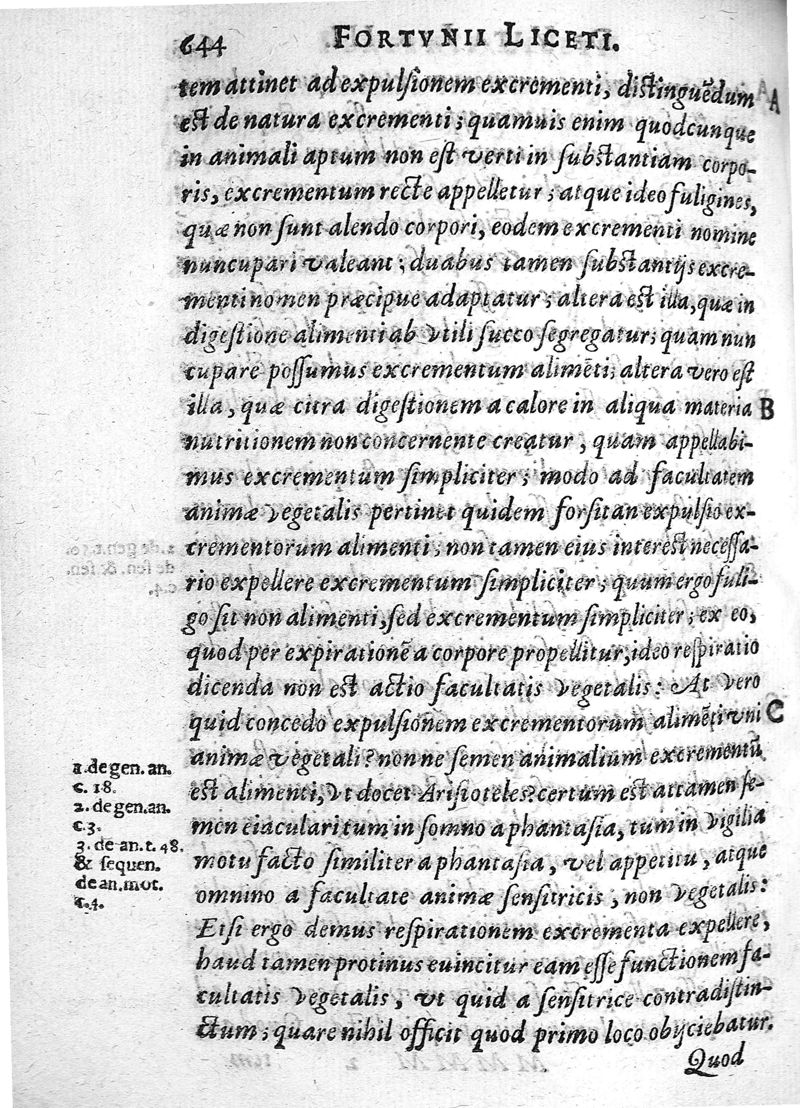 644 FORTVNII LICETI.
tem attinet ad expulsionem excrementi, distinguēdum A
est de natura excrementi; quamuis enim quodcunque
in animali aptum non est verti in substantiam corpo-
ris, excrementum recte appelletur; atque ideo fuligines,
quæ non sunt alendo corpori, eodem excrementi nomine
nuncupari valeant; duabus tamen substantijs excre-
menti nomen præcipue adaptatur; altera est illa, quæ in
digestione alimenti ab vtili succo segregatur; quam nun
cupare possumus excrementum alimēti; altera vero est
illa, quæ citra digestionem a calore in aliqua materia B
nutritionem non concernente creatur, quam appellabi-
mus excrementum simpliciter; modo ad facultatem
animæ vegetalis pertinet quidem forsitan expulsio ex-
crementorum alimenti; non tamen eius interest necessa-
rio expellere excrementum simpliciter; quum ergo fuli-
go sit non alimenti, sed excrementum simpliciter; ex eo,
quod per expirationē a corpore propellitur, ideo respiratio
dicenda non est actio facultatis vegetalis: At vero
quid concedo expulsionem excrementorum alimēti vni C
animæ vegetali? non ne semen animalium excrementū
est alimenti, vt docet Aristoteles? certum est attamen se-
men eiaculari tum in somno a phantasia, tum in vigilia
motu facto similiter a phantasia, vel appetitu, atque
omnino a facultate animæ sensitricis, non vegetalis:
Etsi ergo demus respirationem excrementa expellere,
haud tamen protinus euincitur eam esse functionem fa-
cultatis vegetalis, vt quid a sensitrice contradistin-
ctum; quare nihil officit quod primo loco obijciebatur.
Quod
1. de gen. an.
c. 18.
2. de gen. an.
c. 3.
3. de an. t. 48.
& sequen.
de an. mot.
c. 4.